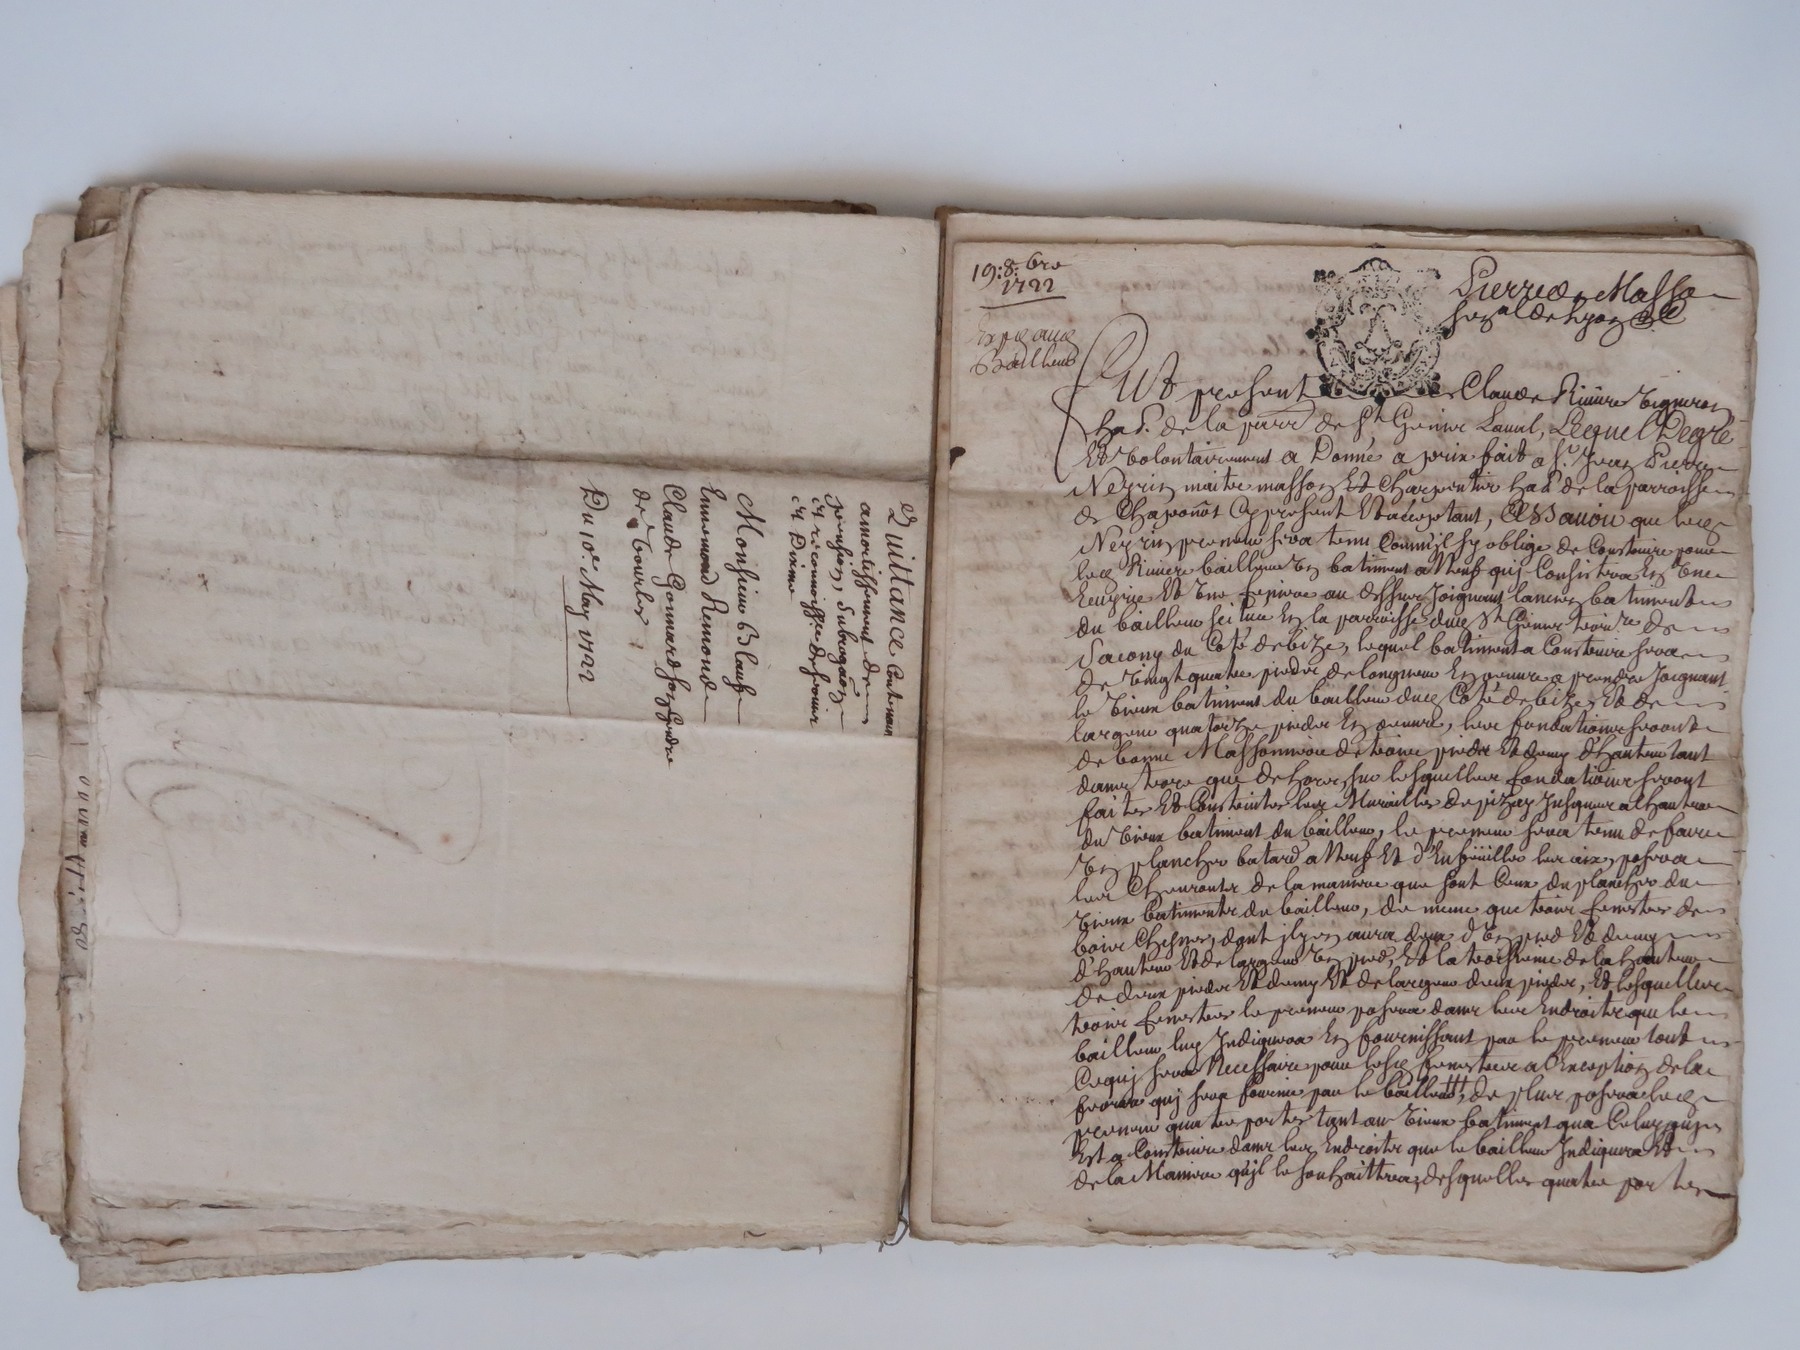 Quittance Contenan
amortissement de
pension, Subrogaôn
et reconnoissce de servis
et Dixme
Monsieur Blauf
Ennemond Remond
Claude Gonnard son gendre
de Tourles
Du 10e May 1722
19: 8: bre
1722
Exp. aud
Bailleur
Pierre Masso
gnal de Lyon
Fut present Claude Riviere Vigneron
hab. de la parr de St Genis Laval, Lequel De gré
Et Volontairement a Donné a prix fait a Sr. Jean Pierre
Neyrin maitre masson Et Charpentier hab de la parroisse
de Chaponôt Cy present Et acceptant, A Sçavoir que led
Neyrin preneur sera tenu Comm'il s'y oblige de Construire pour
led Riviere bailleur Un batiment a Neuf quj Consistera En Une
Ecurie Et Une feniere au dessus Joignant lancien batiment
du bailleur scitue En la parroisse dud St Genis territre de
Sacony du Coté de bize, lequel batiment a Construire sera
de Vingt quatre pieds de longueur En oeuvre a prendre Joignant
le Vieux batiment du bailleur dud Coté de bize, Et de
largeur quatorze pieds En oeuvre, les fondations seront
de bonne Massonnerie de trois pieds Et demy d'Hauteur tant
dans terre que dehors, sur lesquelles fondations seront
faites Et Construites les Murailles de pizay Jusques a l'Hauteur
du Vieux batiment du bailleur, le preneur sera tenu de faire
Un plancher batard a Neuf Et d'Enfëuiller les aix, posera
les Chevronts de la maniere que sont Ceux du plancher du
Vieux batiment du bailleur, de meme que trois fenestres de
bois Chesne, dont jl y en aura deux d'Un pied Et demy
d'Hauteur Et de largeur Un pied, Et la troisieme de la Hauteur
de deux pieds Et demy Et de largeur deux pieds, Et lesquelles
trois fenestres le preneur posera dans les Endroits que le
bailleur luy Indiquera En fournissant par le preneur tout
Cequj sera Necessaire pour lesd fenestres a l'Exception de la
ferrure quj sera fournie par le bailleur, de plus posera led
preneur quatre portes tant au Vieux batiment qu'a Celuy quj
Est a Construire dans les Endroits que le bailleur Indiquera Et
de la Maniere qu'jl le souhaittera, desquelles quatre portes